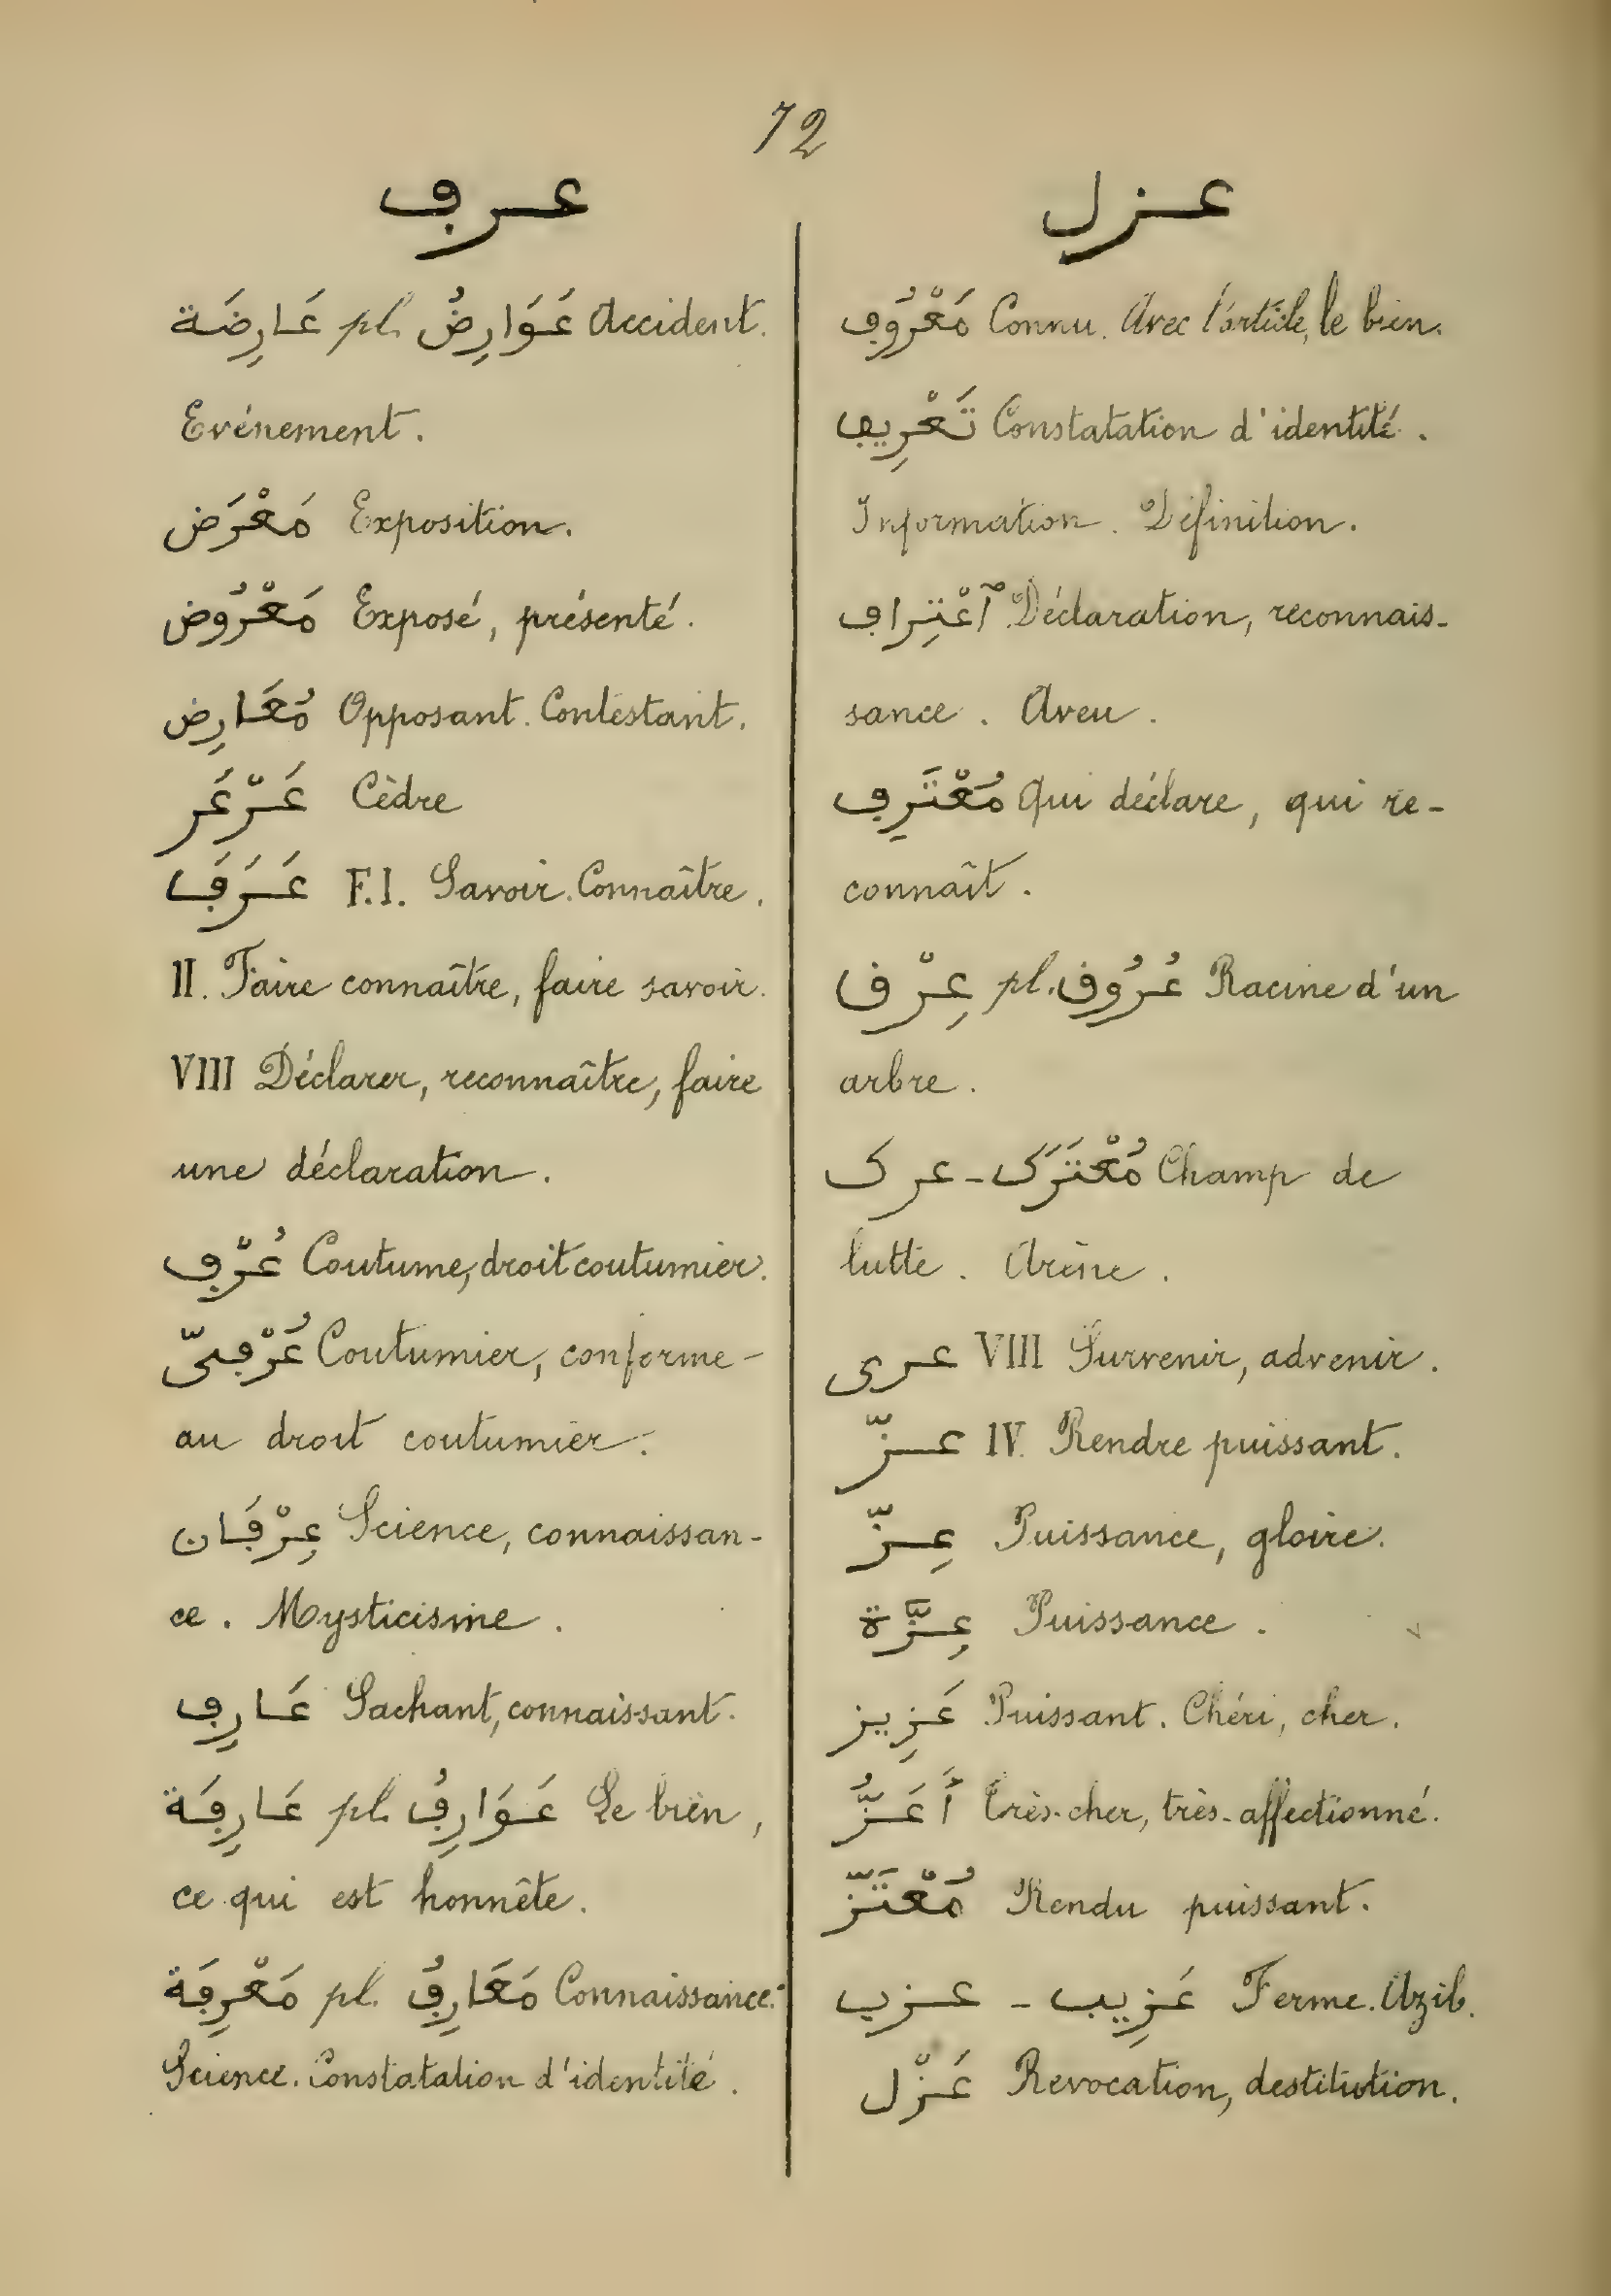 72
عرف
عَارِضَة pl. عَوَارِضُ Accident.
Evénement.
مَعْرَض Exposition.
مَعْرُوض Exposé, présenté.
مُعَارِض Opposant. Contestant.
عَرْعَر Cèdre
عَرَفَ F.I. Savoir. Connaître.
II. Faire connaître, faire savoir.
VIII Déclarer, reconnaître, faire
une déclaration.
عُرْف Coutume, droit coutumier.
عُرْفِىّ Coutumier, conforme-
au droit coutumier.
عِرْفَان Science, connaissan-
ce. Mysticisme.
عَارِف Sachant, connaissant.
عَارِفَة pl. عَوَارِفُ Le bien,
ce qui est honnête.
مَعْرِفَة pl. مَعَارِفُ Connaissance.
Science. Constatation d'identité.
عزل
مَعْرُوف Connu. Avec l'article, le bien.
تَعْرِيف Constatation d'identité.
Information. Définition.
ٱعْتِرَاف Déclaration, reconnais-
sance. Aveu.
مُعْتَرِف Qui déclare, qui re-
connaît.
عِرْق pl. عُرُوق Racine d'un
arbre.
عرك - مُعْتَرَك Champ de
lutte. Arène.
عرى VIII Survenir, advenir.
عزّ IV. Rendre puissant.
عِزّ Puissance, gloire.
عِزَّة Puissance.
عَزِيز Puissant. Chéri, cher.
أَعَزُّ très-cher, très-affectionné.
مُعْتَزّ Rendu puissant.
عزب - عَزِيب Ferme. Azib.
عَزْل Revocation, destitution.